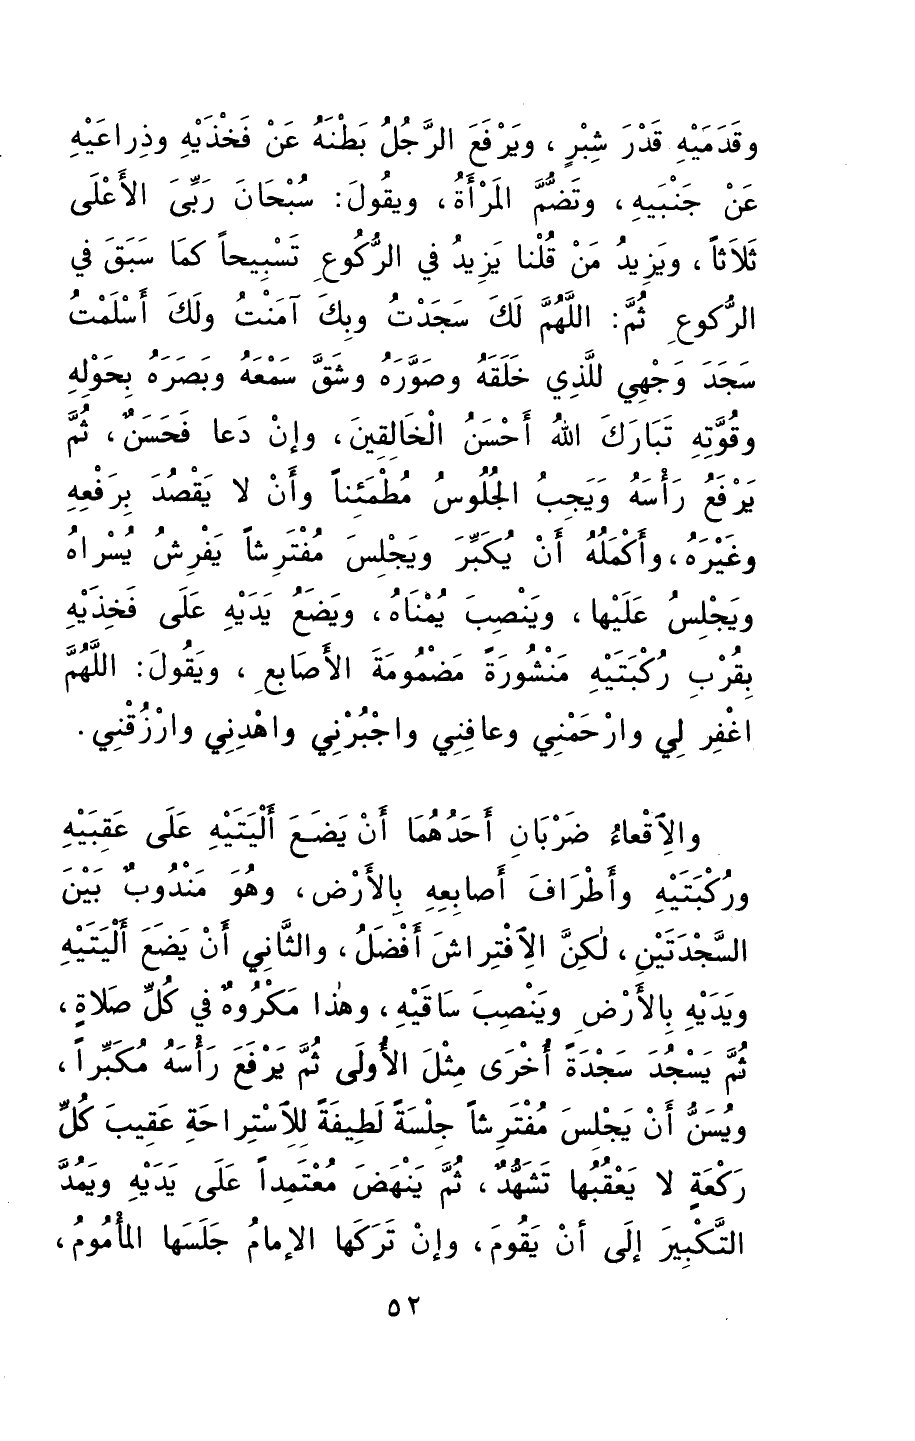 وقَدَمَيْهِ قَدْرَ شِبْرٍ ، ويَرْفَعَ الرَّجُلُ بَطْنَهُ عَنْ فَخْذَيْهِ وذِراعَيْهِ
عَنْ جَنْبَيهِ ، وتَضُمَّ المَرْأَةُ ، ويقُولَ : سُبْحَانَ رَبِّىَ الأَعْلَى
ثَلاَثاً ، ويَزِيدُ مَنْ قُلْنا يَزِيدُ في الرُّكُوعِ تَسْبِيحاً كمَا سَبَقَ في
الرُّكوعِ ثُمَّ : اللَّهُمَّ لَكَ سَجَدْتُ وبِكَ آمَنْتُ ولَكَ أَسْلَمْتُ
سَجَدَ وَجْهِي للَّذِي خَلَقَهُ وصَوَّرَهُ وشَقَّ سَمْعَهُ وبَصَرَهُ بِحَوْلِهِ
وقُوَّتِهِ تَبَارَكَ اللهُ أَحْسَنُ الْخَالِقِينَ ، وإنْ دَعا فَحَسَنٌ ، ثُمَّ
يَرْفَعُ رَأْسَهُ وَيَجِبُ الجُلُوسُ مُطْمَئِناً وأَنْ لا يَقْصُدَ بِرَفعِهِ
وغَيْرَهُ ، وأَكْمَلُهُ أَنْ يُكَبِّرَ ويَجْلِسَ مُفْتَرِشاً يَفْرِشُ يُسْراهُ
ويَجْلِسُ عَلَيْها ، ويَنْصِبَ يُمْنَاهُ ، ويَضَعُ يَدَيْهِ عَلَى فَخِذَيْهِ
بِقُرْبِ رُكْبَتَيْهِ مَنْشُورَةً مَضْمُومَةَ الأَصَابعِ ، ويَقُولَ : اللَّهُمَّ
اغْفِر لِي وارْحَمْنِي وعافِنِي واجْبُرْنِي واهْدِنِي وارْزُقْنِي .
والإِقْعاءُ ضَرْبَانِ أَحَدُهُمَا أَنْ يَضَعَ أَلْيَتَيْهِ عَلَى عَقِبَيْهِ
ورُكْبَتَيْهِ وأَطْرَافَ أَصابِعِهِ بِالأَرْضِ ، وهُوَ مَنْدُوبٌ بَيْنَ
السَّجْدَتَيْنِ ، لٰكِنَّ الِافْتِراشَ أَفْضَلُ ، والثَّانِي أَنْ يَضَعَ أَلْيَتَيْهِ
ويَدَيْهِ بِالأَرْضِ ويَنْصِبَ سَاقَيْهِ ، وهٰذا مَكْرُوهٌ في كُلِّ صَلاَةٍ ،
ثُمَّ يَسْجُدَ سَجْدَةً أُخْرَى مِثْلَ الأُولَى ثُمَّ يَرْفَعَ رَأْسَهُ مُكَبِّراً ،
ويُسَنُّ أَنْ يَجْلِسَ مُفْتَرِشاً جِلْسَةً لَطِيفَةً لِلاسْتِراحَةِ عَقِيبَ كُلِّ
رَكْعَةٍ لا يَعْقُبُها تَشَهُّدٌ ، ثُمَّ يَنْهَضَ مُعْتَمِداً عَلَى يَدَيْهِ ويَمُدَّ
التَّكْبِيرَ إلَى أنْ يَقُومَ ، وإنْ تَرَكَها الإمامُ جَلَسَها المأْمُومُ ،
٥٢